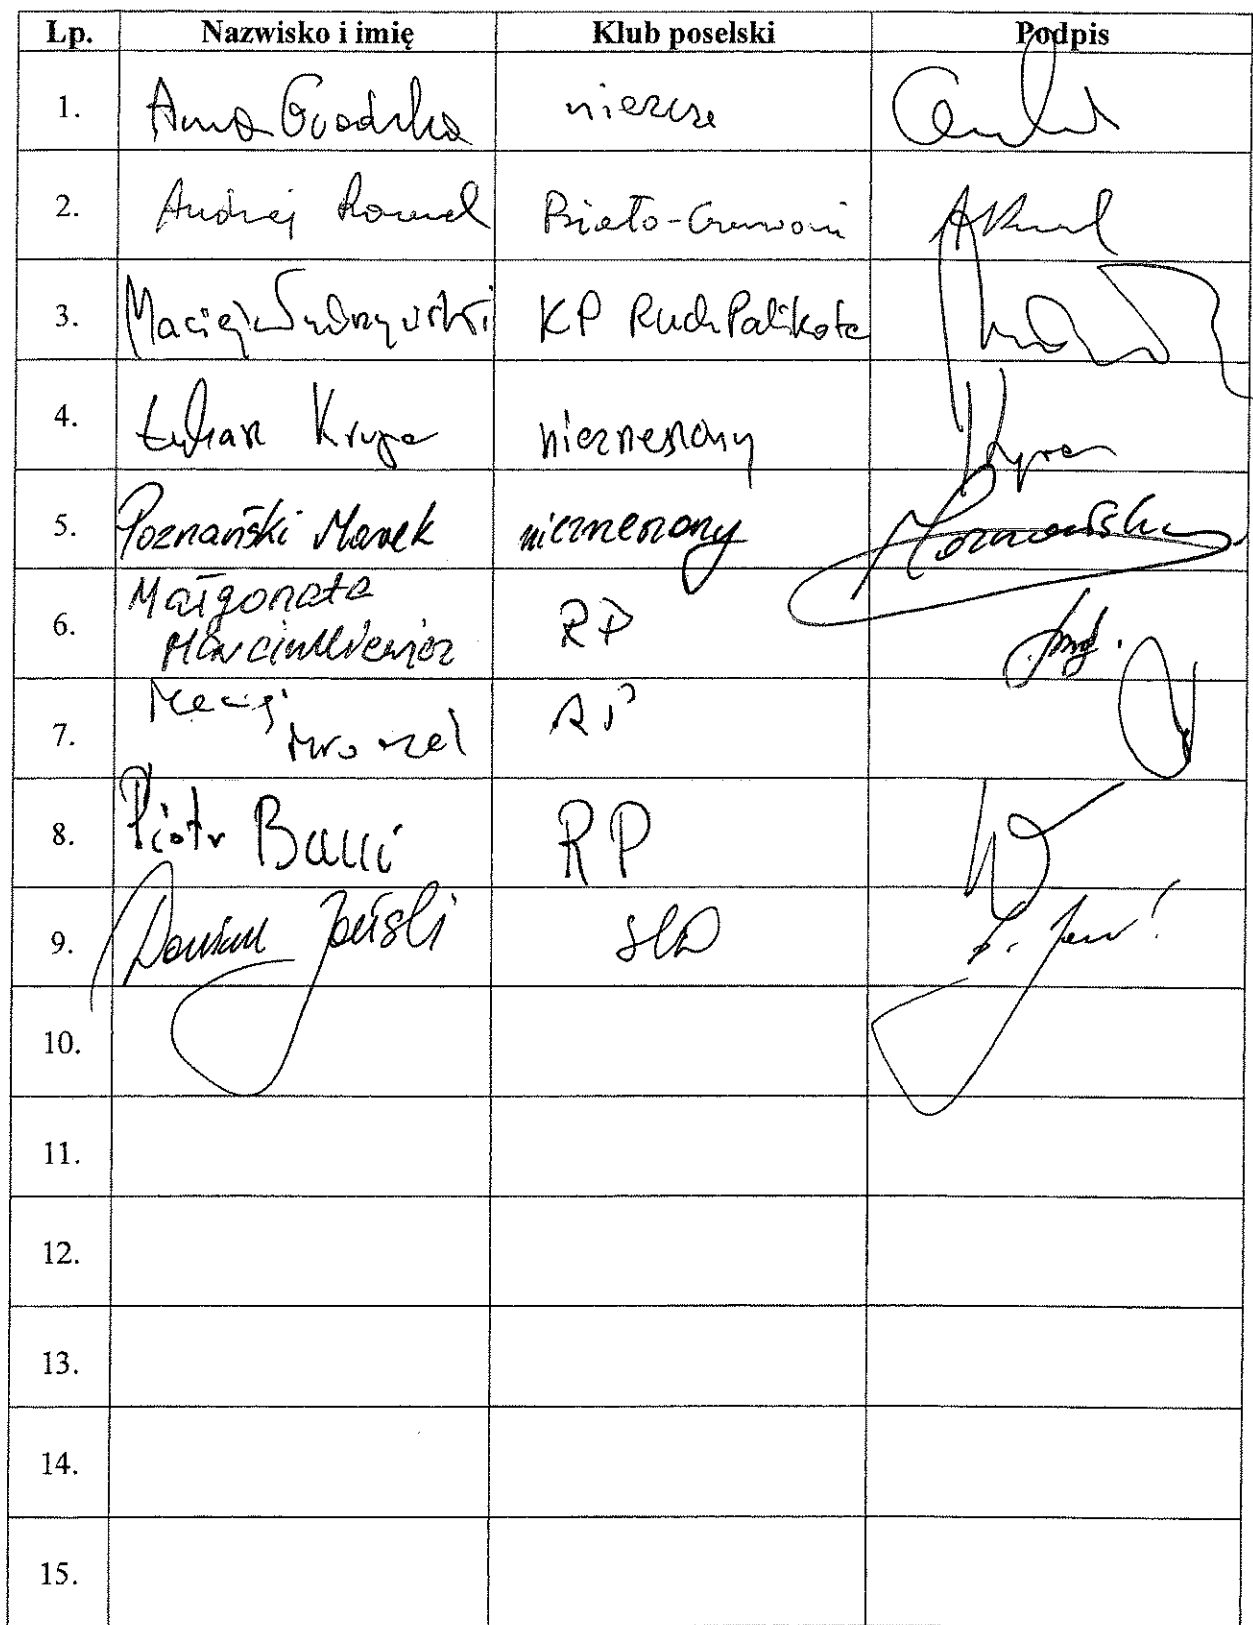 Lp. Nazwisko i imię Klub poselski Podpis
1. Anna Grodzka niezrze
2. Andrzej Romanek Biało-Czerwoni
3. Maciej KP Ruch Palikota
4. Łukasz Krupa niezrzeszony
5. Poznański Marek niezrzeszony Poznański
6. Małgorzata
Marcinkiewicz RP
7. Maciej
Mroczek RP
8. Piotr Bauć RP
9. Dariusz Joński SLD
10.
11.
12.
13.
14.
15.